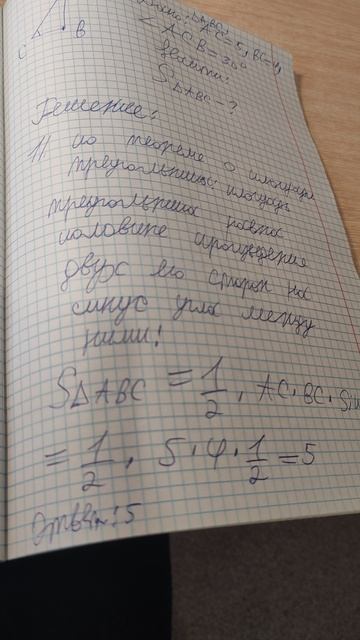 C B
Дано: △ABC,
AC=5, BC=4,
∠ACB=30°
Найти:
S△ABC-?
Решение:
1) по теореме о площади
треугольника: площадь
треугольника равна
половине произведения
двух его сторон на
синус угла между
ними!
S△ABC = 1/2 · AC · BC · Sin
= 1/2 · 5 · 4 · 1/2 = 5
Ответ: 5